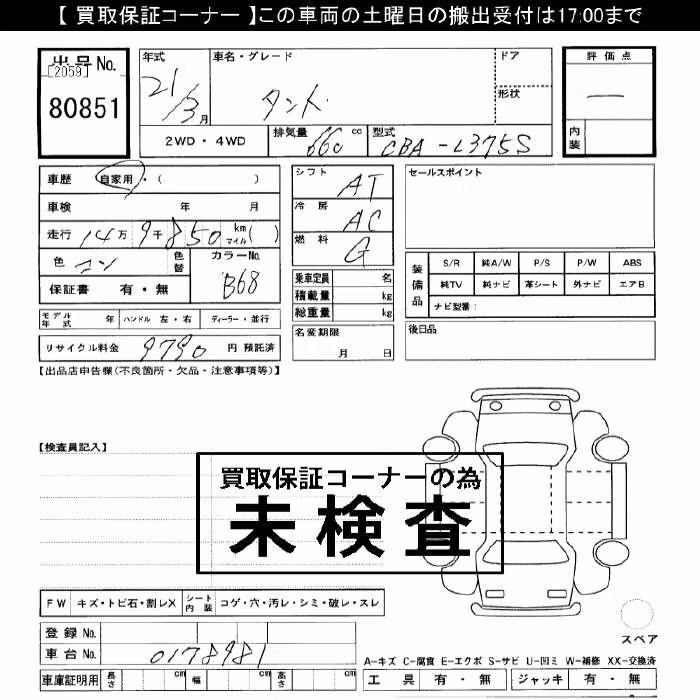 【 買取保証コーナー 】この車両の土曜日の搬出受付は17:00まで
出品No.
[2059]
80851
年式
21/3月
車名・グレード
タント
ドア
形状
評価点
—
内装
2WD・4WD
排気量 660 cc
型式 CBA-L375S
車歴 自家用・( )
車検 年 月
走行 14万9千850 km マイル ( )
色 コン 色替
カラーNo. B68
保証書 有・無
シフト AT
冷房 AC
燃料 G
セールスポイント
乗車定員 名
積載量 kg
総重量 kg
装備品
S/R 純A/W P/S P/W ABS
純TV 純ナビ 革シート 外ナビ エアB
ナビ型番:
モデル年式 年 ハンドル 左・右 ディーラー・並行
名変期限 月 日
後日品
リサイクル料金 9790 円 預託済
【出品店申告欄(不良箇所・欠品・注意事項等)】
【検査員記入】
買取保証コーナーの為
未検査
FW キズ・トビ石・割レX シート内装 コゲ・穴・汚レ・シミ・破レ・スレ
登録No.
車台No. 0178981
車庫証明用 長さ cm 幅 cm 高さ cm
スペア
A-キズ C-腐食 E-エクボ S-サビ U-凹ミ W-補修 XX-交換済
工具 有・無 ジャッキ 有・無